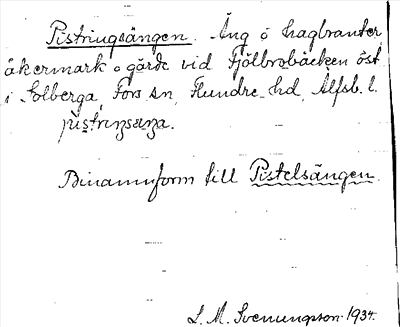 Pistringsängen. Äng o hagbranter
åkermark o gärde vid Fjölbrobäcken öst
i Solberga, Fors sn, Flundre hd, Älfsb. l.
pistriŋsæŋa.
Binamnform till Pistelsängen.
L. M. Svenungsson 1934.